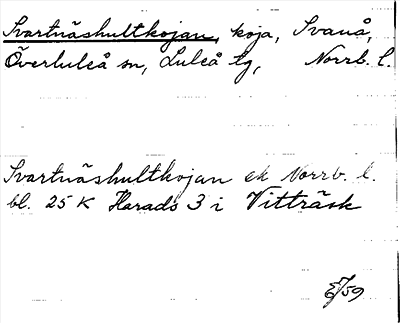 Svartnäshultkojan, koja, Svanå,
Överluleå sn, Luleå tg, Norrb. l.
Svartnäshultkojan ek Norrb. l.
bl. 25 K Harads 3 i Vitträsk
/59